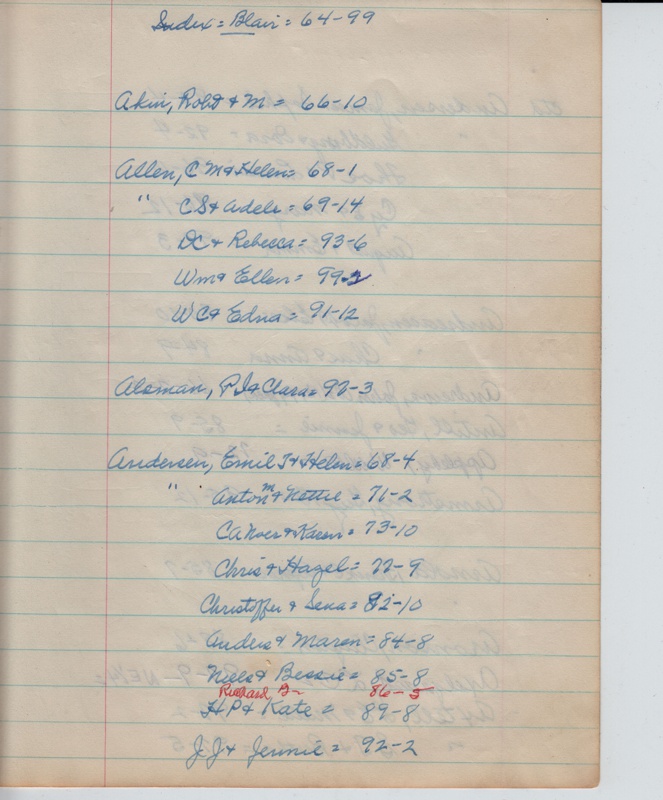 Index = Blair = 64-99
Akin, Robt & M = 66-10
Allen, C M & Helen = 68-1
" C S & Adele = 69-14
DC & Rebecca = 93-6
Wm & Ellen = 99-2
W C & Edna = 91-12
Alsman, P I & Clara = 92-3
Andersen, Emil T & Helen = 68-4
" Anton M & Nettie = 71-2
& Karen = 73-10
Chris & Hazel = 77-9
Christoffer & Lena = 82-10
Anders & Maren = 84-8
Neels & Bessie = 85-8
Richard 86-5
H P & Kate = 89-8
J J & Jennie = 92-2